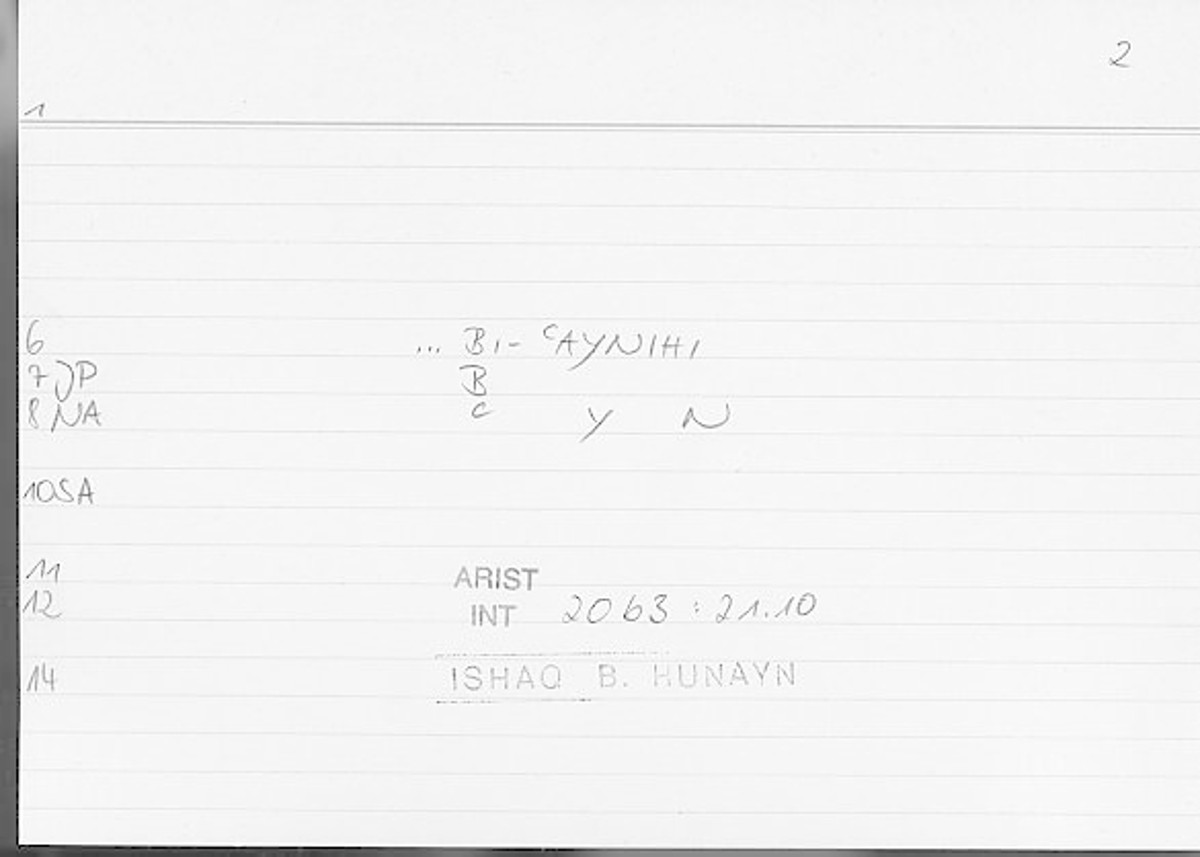 2
1
6 ... BI- ᶜAYNIHI
7 JP B
8 NA ᶜ Y N
10 SA
11 ARIST
12 INT 2063 : 21.10
14 ISHAQ B. HUNAYN